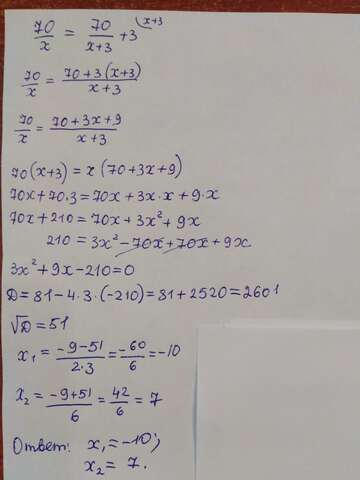 70/x = 70/(x+3) + 3 \x+3
70/x = (70+3(x+3))/(x+3)
70/x = (70+3x+9)/(x+3)
70(x+3) = x(70+3x+9)
70x+70·3=70x+3x·x+9·x
70x+210=70x+3x²+9x
210=3x²-70x+70x+9x
3x²+9x-210=0
D=81-4·3·(-210)=81+2520=2601
√D=51
x₁=(-9-51)/(2·3)=-60/6=-10
x₂=(-9+51)/6=42/6=7
Ответ: x₁=-10;
x₂=7.